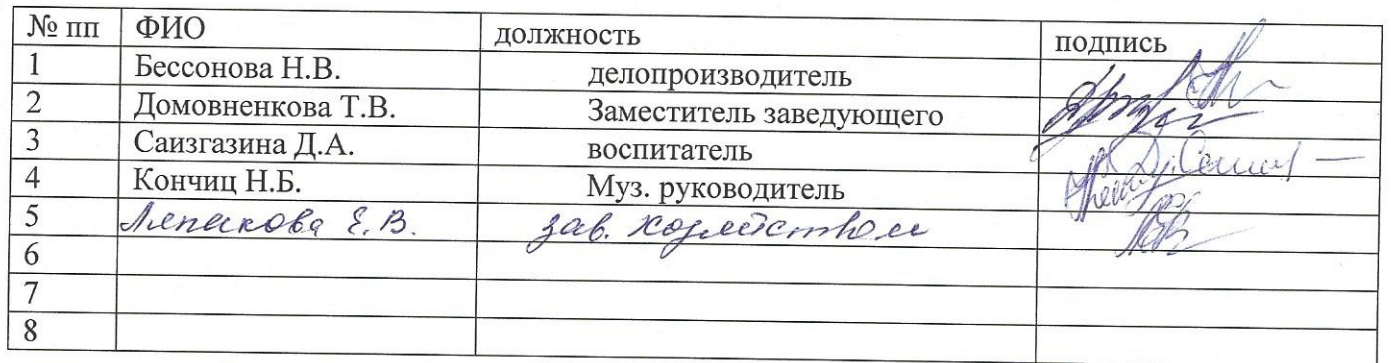 № пп ФИО должность подпись
1 Бессонова Н.В. делопроизводитель
2 Домовненкова Т.В. Заместитель заведующего
3 Саизгазина Д.А. воспитатель
4 Кончиц Н.Б. Муз. руководитель
5 Е.В. зав. хозяйством
6
7
8